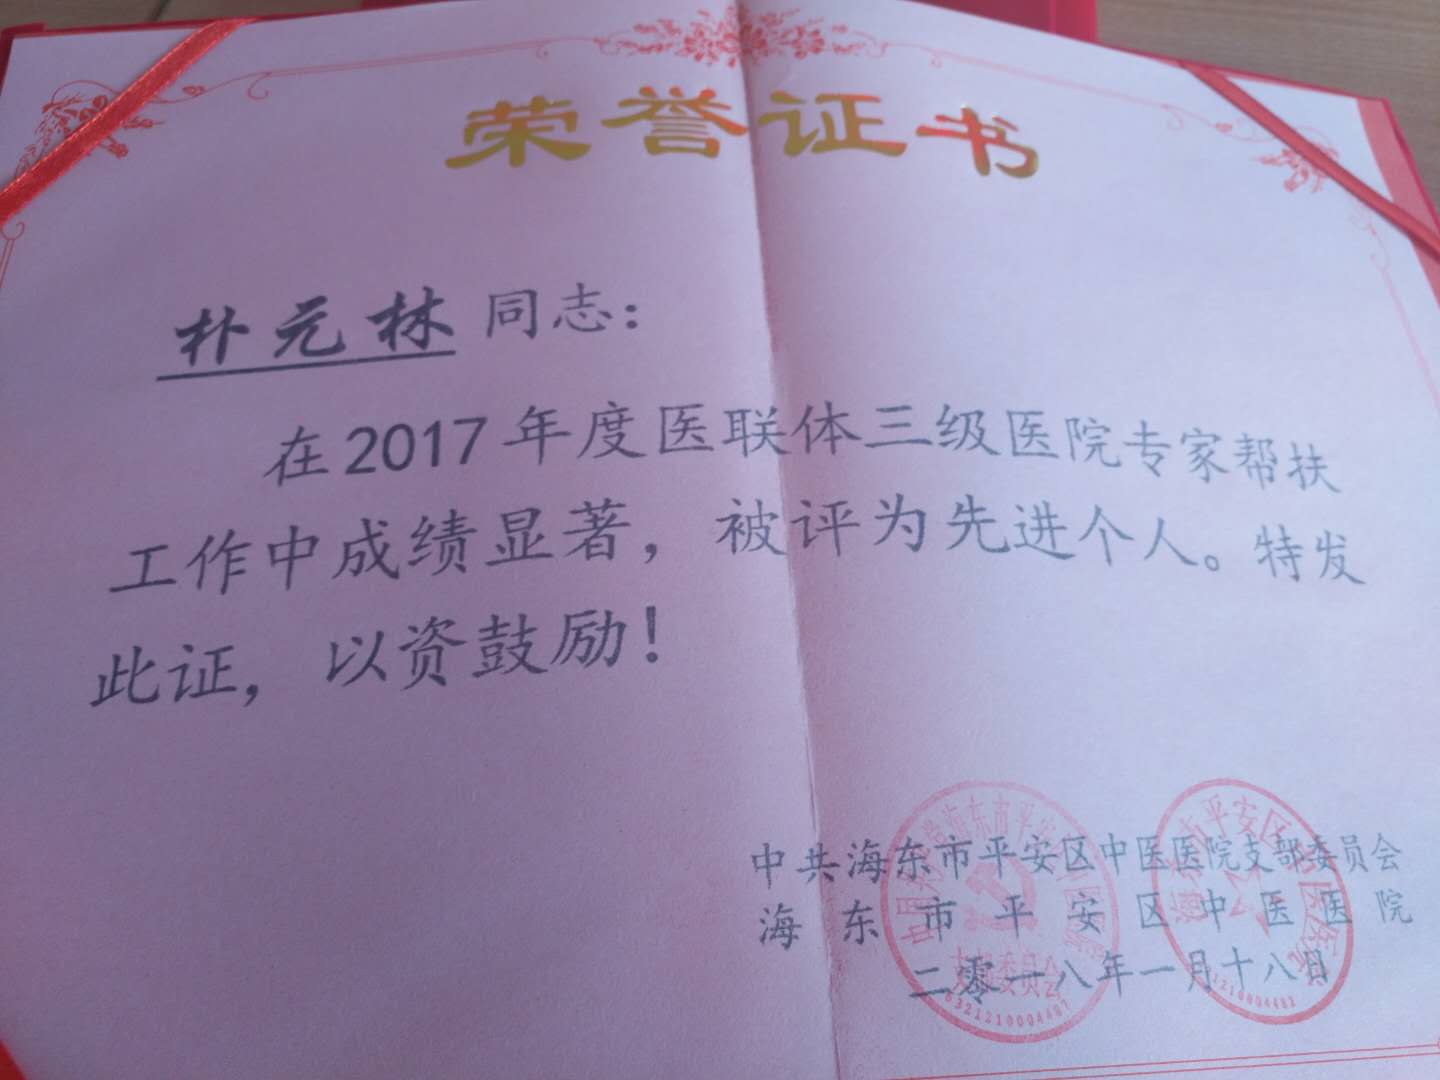 荣誉证书
朴元林 同志：
在2017年度医联体三级医院专家帮扶
工作中成绩显著，被评为先进个人。特发
此证，以资鼓励！
中共海东市平安区中医医院支部委员会
海东市平安区中医医院
二零一八年一月十八日
6321210004487